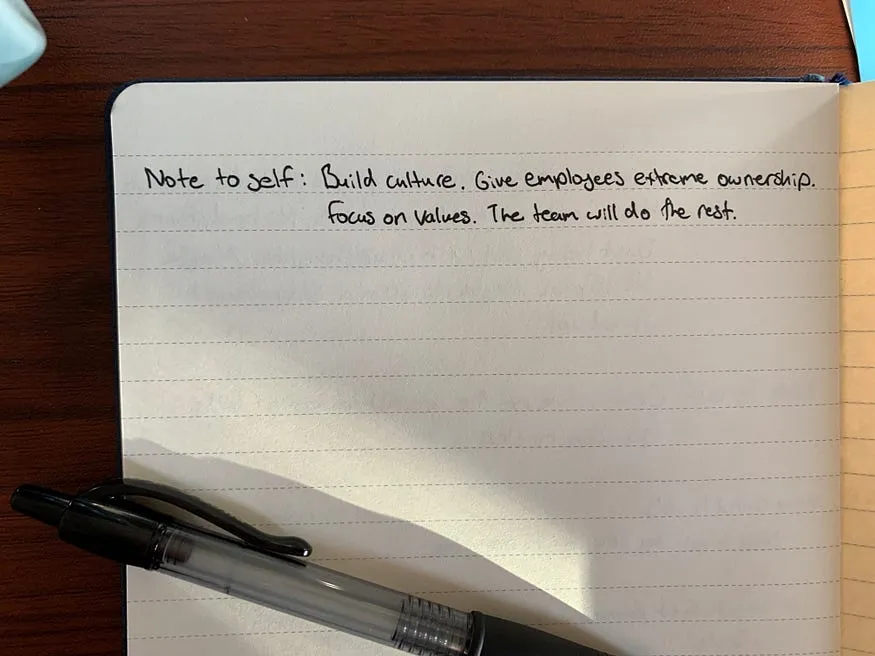 Note to self: Build culture. Give employees extreme ownership.
Focus on values. The team will do the rest.